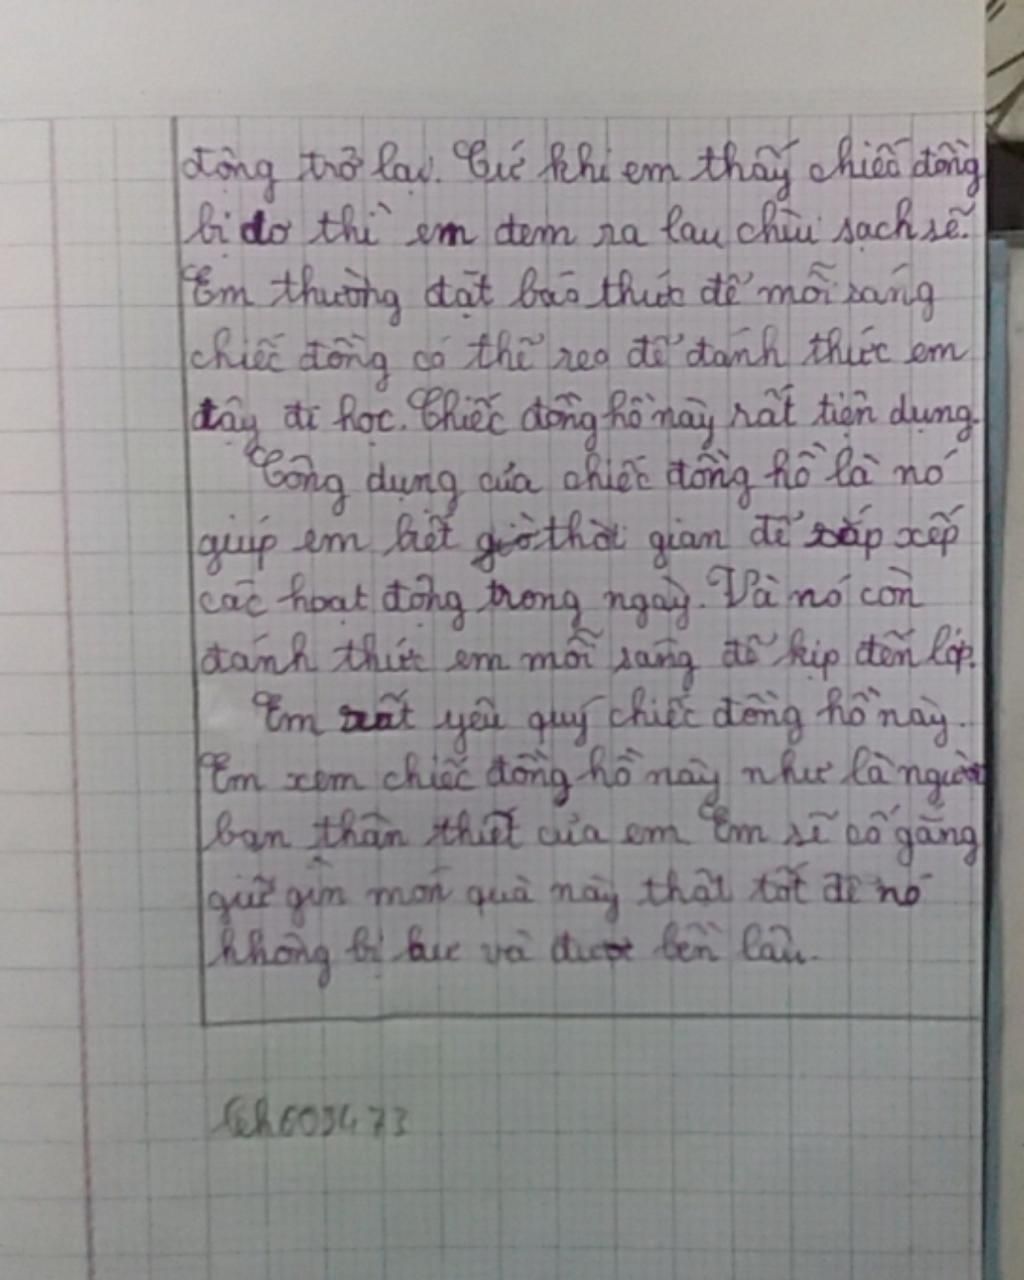 động trở lại. Cứ khi em thấy chiếc đồng
bị dơ thì em đem ra lau chùi sạch sẽ.
Em thường đặt báo thức để mỗi sáng
chiếc đồng có thể reo để đánh thức em
dậy đi học. Chiếc đồng hồ này rất tiện dụng.
Công dụng của chiếc đồng hồ là nó
giúp em biết giờ thời gian để sắp xếp
các hoạt động trong ngày. Và nó còn
đánh thức em mỗi sáng để kịp đến lớp.
Em rất yêu quý chiếc đồng hồ này.
Em xem chiếc đồng hồ này như là người
bạn thân thiết của em Em sẽ cố gắng
giữ gìn món quà này thật tốt để nó
không bị hư và được bền lâu.